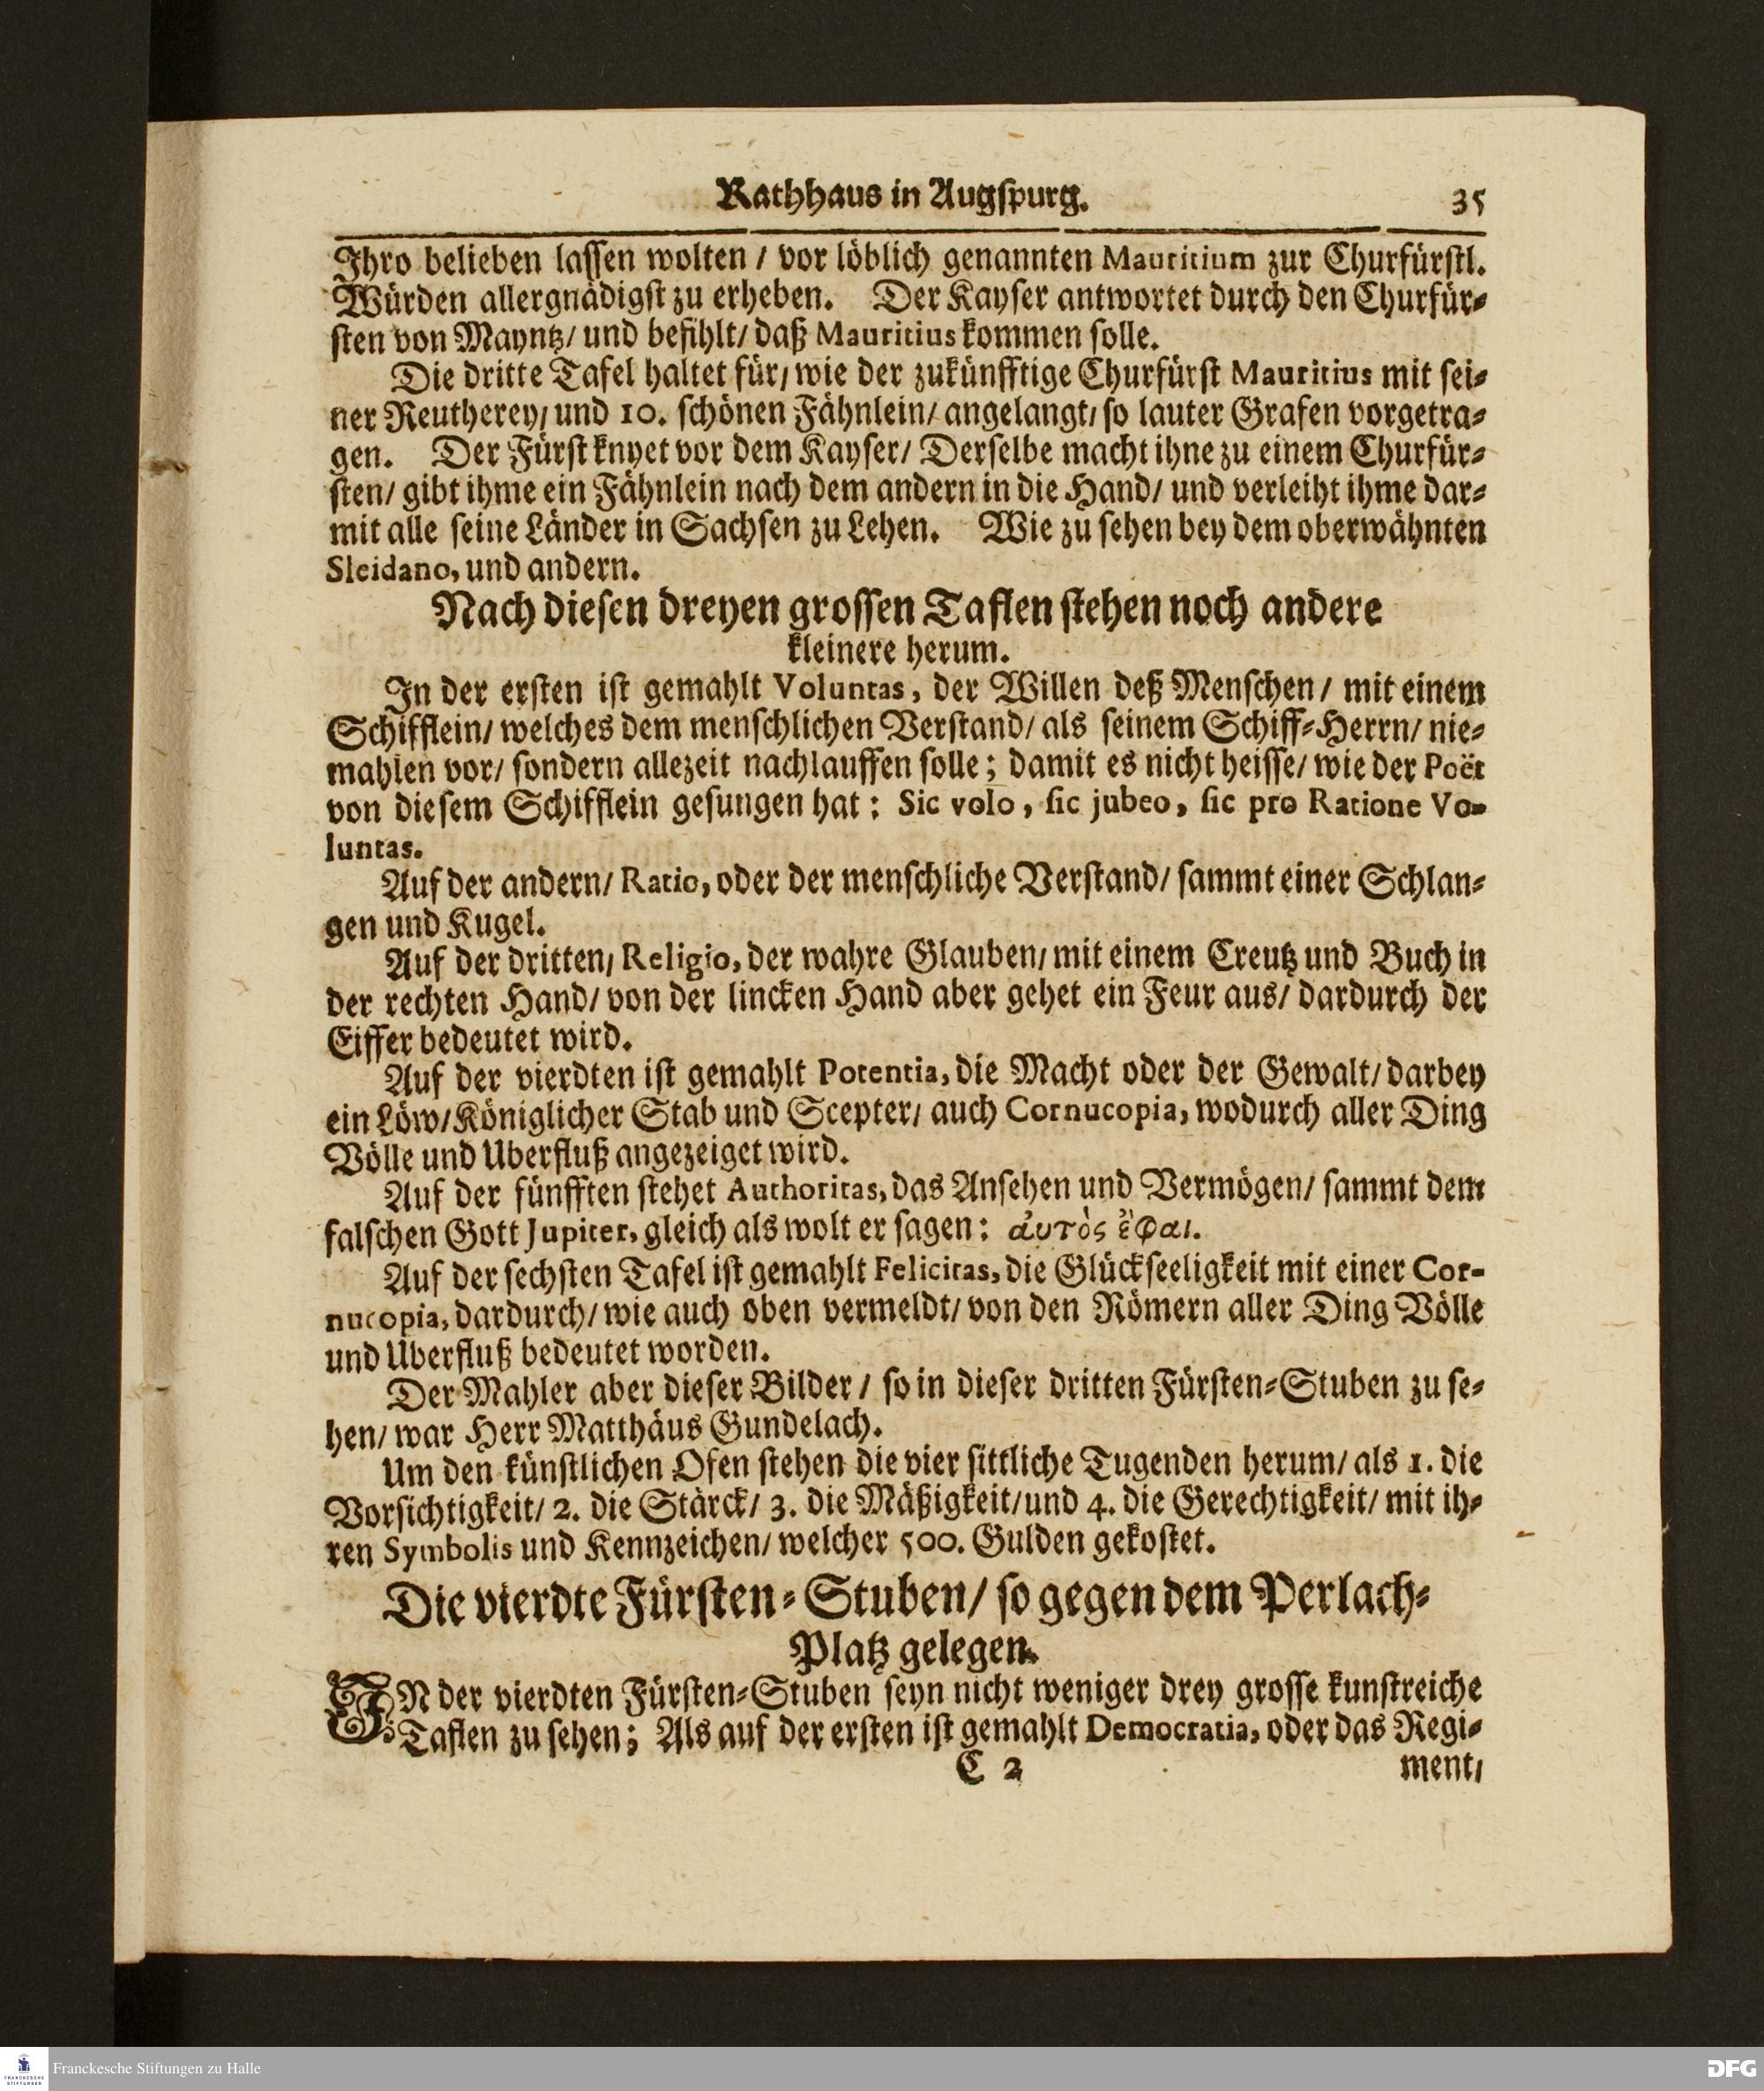 Rathhaus in Augspurg. 35
Ihro belieben lassen wolten / vor löblich genannten Mauritium zur Churfürstl.
Würden allergnädigst zu erheben. Der Kayser antwortet durch den Churfür-
sten von Mayntz/ und befihlt/ daß Mauritius kommen solle.
Die dritte Tafel haltet für/ wie der zukünfftige Churfürst Mauritius mit sei-
ner Reutherey/ und 10. schönen Fähnlein/ angelangt/ so lauter Grafen vorgetra-
gen. Der Fürst knyet vor dem Kayser/ Derselbe macht ihne zu einem Churfür-
sten/ gibt ihme ein Fähnlein nach dem andern in die Hand/ und verleiht ihme dar-
mit alle seine Länder in Sachsen zu Lehen. Wie zu sehen bey dem oberwähnten
Sleidano, und andern.
Nach diesen dreyen grossen Taflen stehen noch andere
kleinere herum.
In der ersten ist gemahlt Voluntas, der Willen deß Menschen / mit einem
Schifflein/ welches dem menschlichen Verstand/ als seinem Schiff-Herrn/ nie-
mahlen vor/ sondern allezeit nachlauffen solle; damit es nicht heisse/ wie der Poët
von diesem Schifflein gesungen hat: Sic volo, sic jubeo, sic pro Ratione Vo-
luntas.
Auf der andern/ Ratio, oder der menschliche Verstand/ sammt einer Schlan-
gen und Kugel.
Auf der dritten/ Religio, der wahre Glauben/ mit einem Creutz und Buch in
der rechten Hand/ von der lincken Hand aber gehet ein Feur aus/ dardurch der
Eiffer bedeutet wird.
Auf der vierdten ist gemahlt Potentia, die Macht oder der Gewalt/ darbey
ein Löw/ Königlicher Stab und Scepter/ auch Cornucopia, wodurch aller Ding
Völle und Uberfluß angezeiget wird.
Auf der fünfften stehet Authoritas, das Ansehen und Vermögen/ sammt dem
falschen Gott Jupiter, gleich als wolt er sagen: ἀυτὸς ἔφαι.
Auf der sechsten Tafel ist gemahlt Felicitas, die Glückseeligkeit mit einer Cor-
nucopia, dardurch/ wie auch oben vermeldt/ von den Römern aller Ding Völle
und Uberfluß bedeutet worden.
Der Mahler aber dieser Bilder / so in dieser dritten Fürsten-Stuben zu se-
hen/ war Herr Matthäus Gundelach.
Um den künstlichen Ofen stehen die vier sittliche Tugenden herum/ als 1. die
Vorsichtigkeit/ 2. die Stärck/ 3. die Mäßigkeit/ und 4. die Gerechtigkeit/ mit ih-
ren Symbolis und Kennzeichen/ welcher 500. Gulden gekostet.
Die vierdte Fürsten-Stuben/ so gegen dem Perlach-
Platz gelegen.
IN der vierdten Fürsten-Stuben seyn nicht weniger drey grosse kunstreiche
Taflen zu sehen; Als auf der ersten ist gemahlt Democratia, oder das Regi-
C 2 ment/
FRANCKESCHE STIFTUNGEN
Franckesche Stiftungen zu Halle
DFG